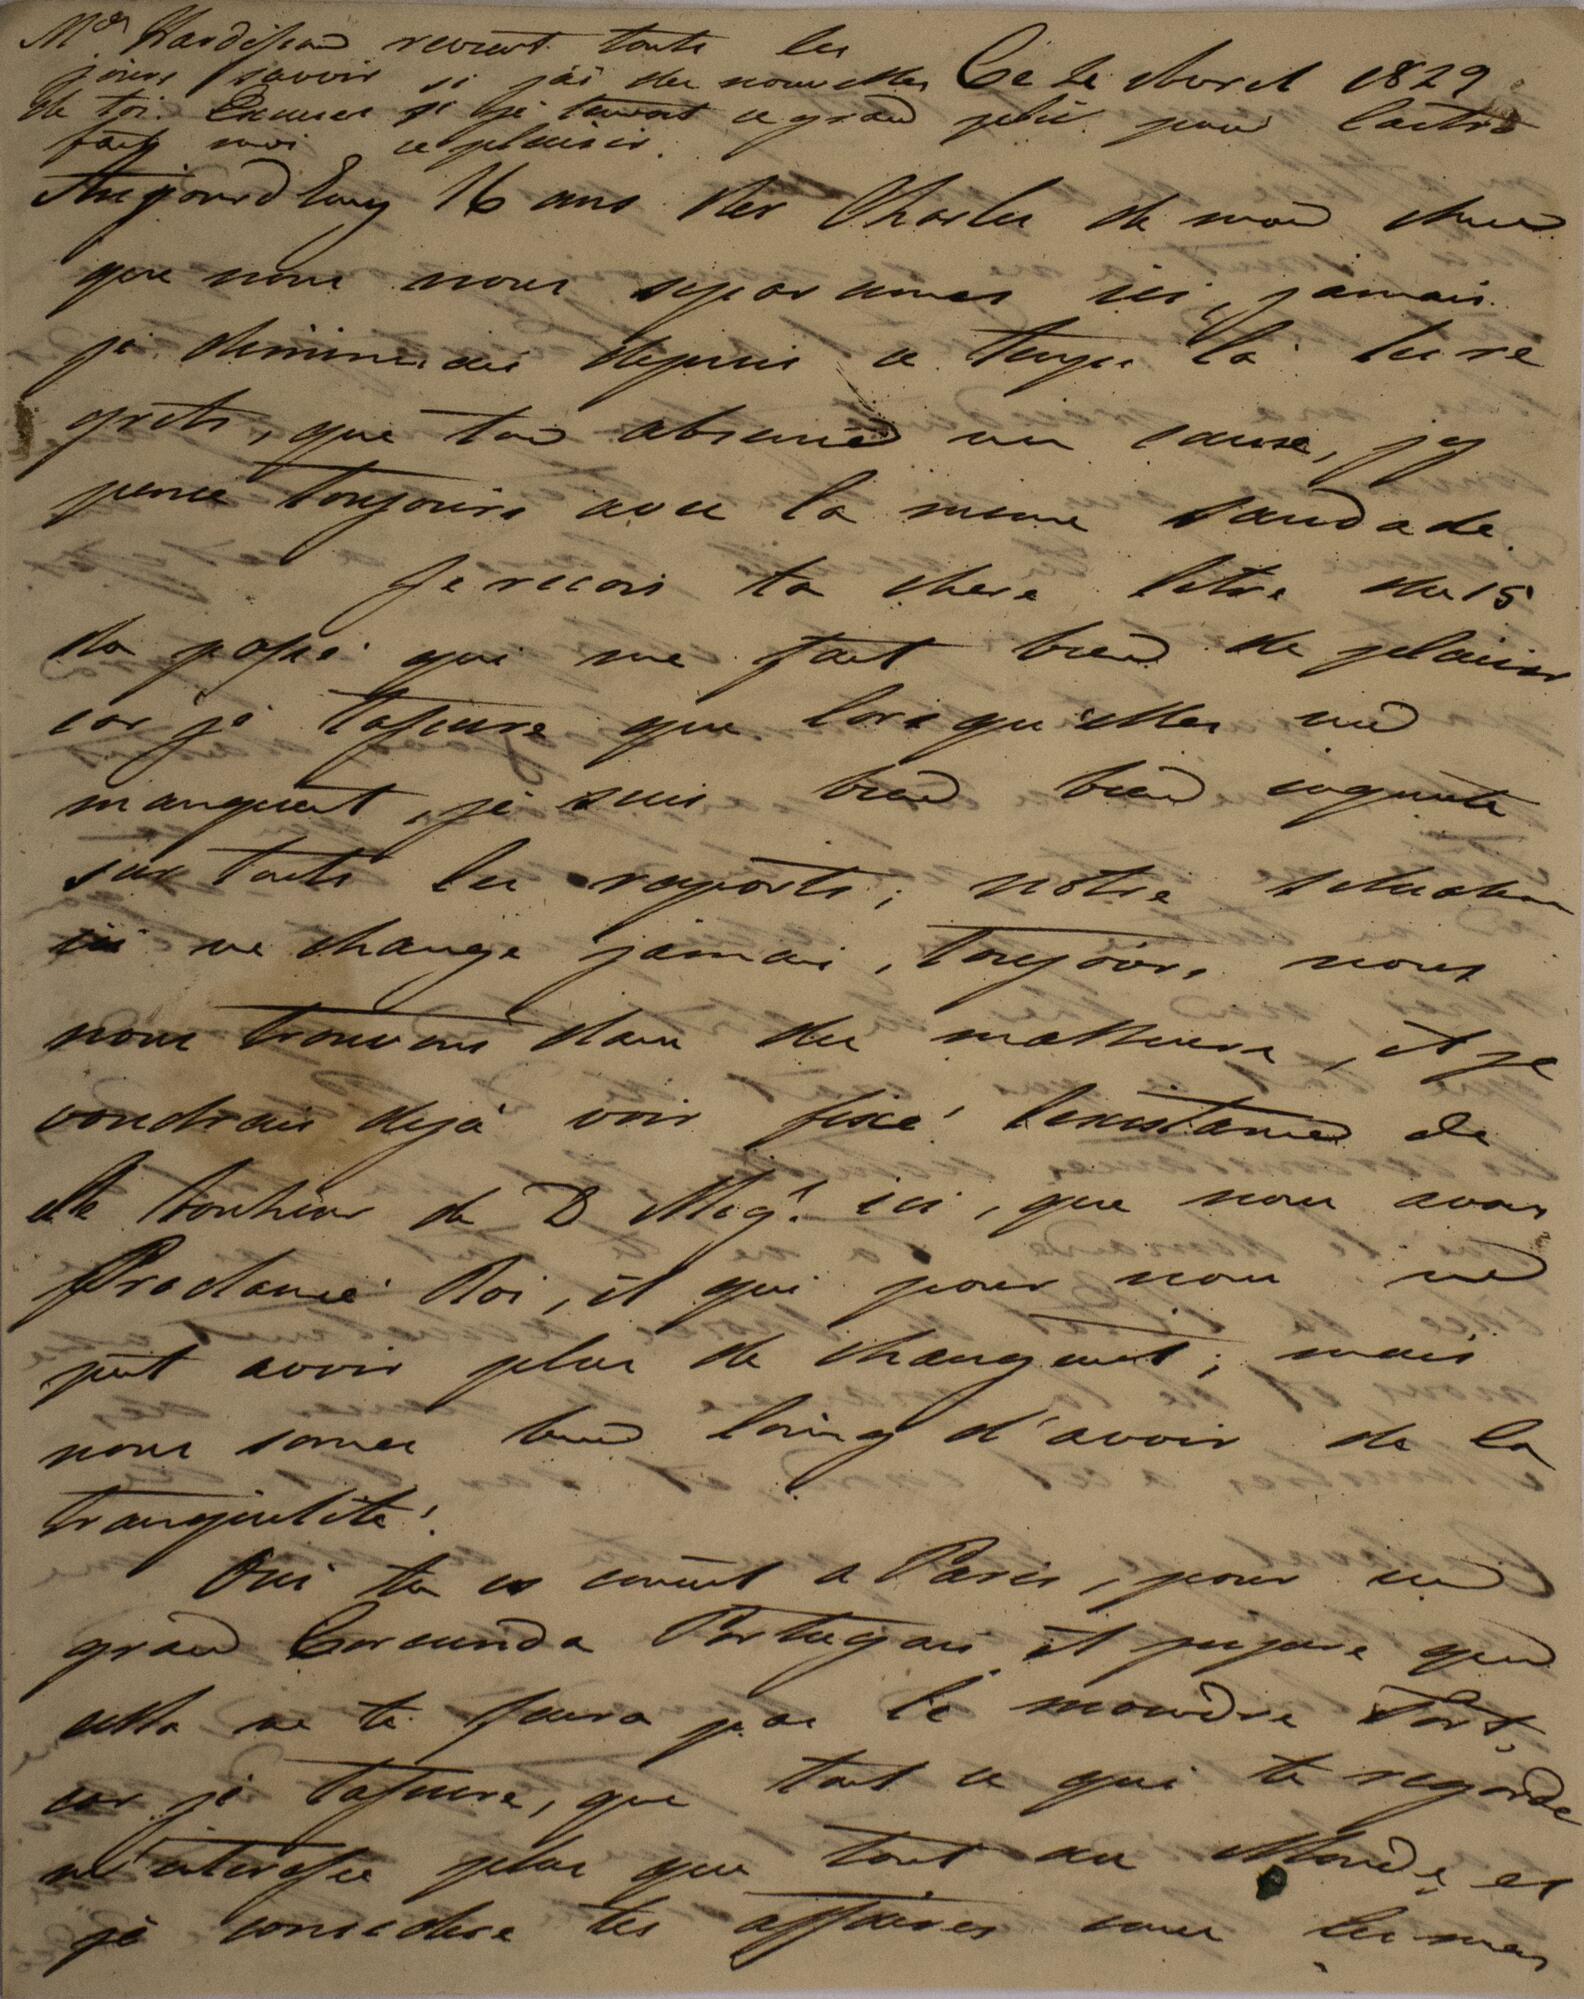 revient toute les
jours savoir si j'ai des nouvelles
Ce 2 Avril 1829
de toi. Excuse si je tourent ce grand pour lautre
fait moi ce plaisir.
Aujourdhuy 16 ans Charles de mon
que nous nous separames ici, jamais
je diminuai depuis ce temps là les re
grets, que ton absence me cause, jy
pence toujours avec la meme saudade.
Je recois ta chere letre du 15
da passé qui me fait bien de plaisir
car je tassure que lorsqu'elles me
manquent, je suis bien bien inquiete
sur touts les raports; notre situation
ici ne change jamais, toujours nous
nous trouvons dans des malheurs, et je
voudrais dejà voir fixé lexistance de
le bonheur de D Mig.l ici, que nous avons
Proclamé Roi, et qui pour nous ne
put avoir plus de changement; mais
nous somes bien loing d'avoir de la
tranquilité.
Oui tu es connut a Paris, pour un
grand Corcunda Portugais et jespere que
cella ne te faira pas le moindre tort,
car je tassure, que tout ce qui te regarde
m'interesse plus que tout au Monde, et
je considere tes affaires come les mes